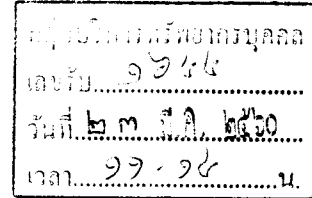 กลุ่มบริหารทรัพยากรบุคคล
เลขรับ.....๑๖๔๔
วันที่ ๒๓ มี.ค. ๒๕๖๐
เวลา.....๑๑.๑๔.....น.